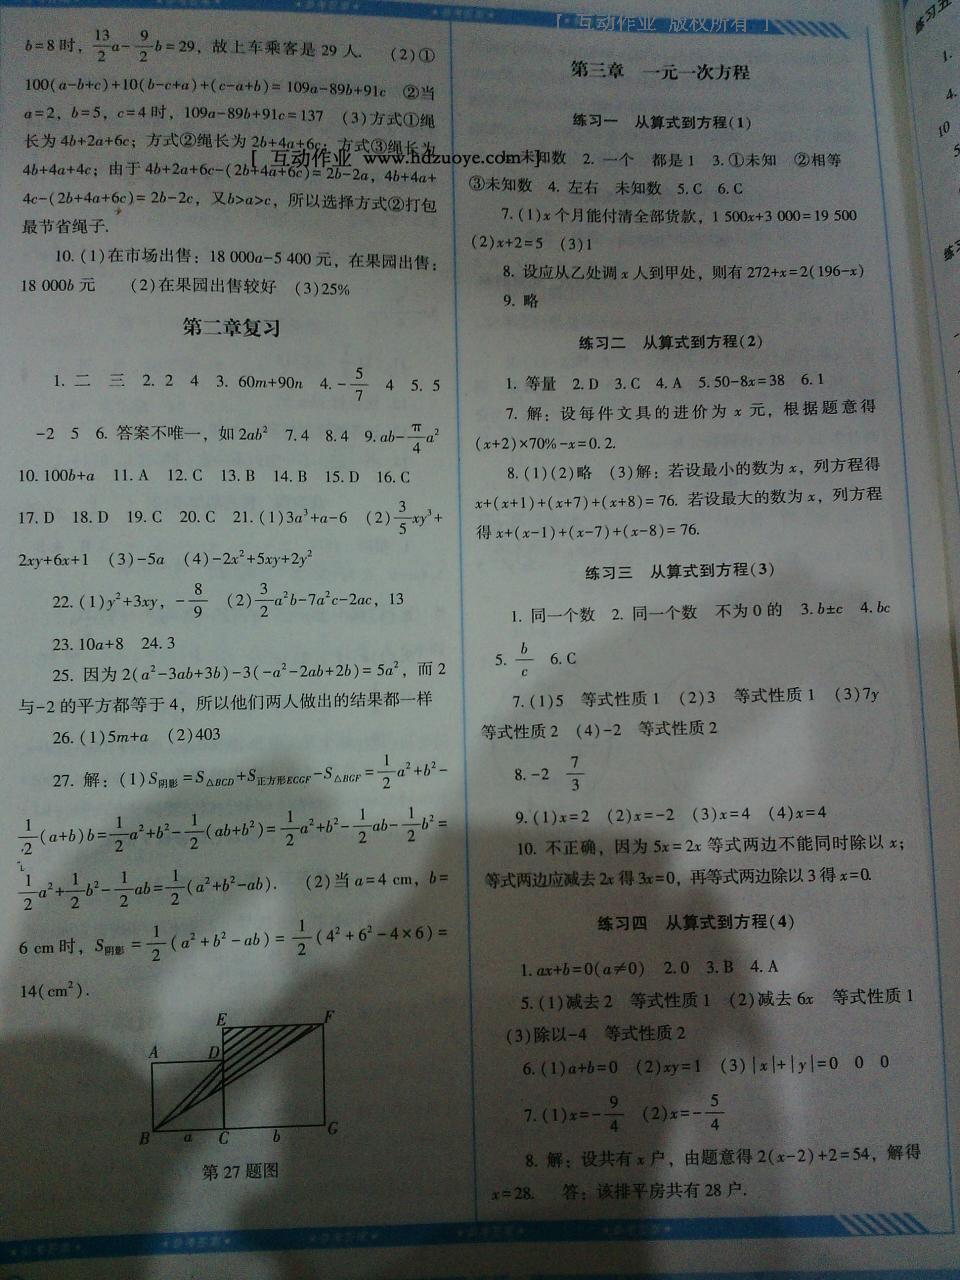 [ 互动作业 版权所有 ]
b=8时，13/2a-9/2b=29，故上车乘客是29人. (2)①
100(a-b+c)+10(b-c+a)+(c-a+b)=109a-89b+91c ②当
a=2，b=5，c=4时，109a-89b+91c=137 (3)方式①绳
长为4b+2a+6c；方式②绳长为2b+4a+6c；方式③绳长为
[ 互动作业 www.hdzuoye.com ]
4b+4a+4c；由于4b+2a+6c-(2b+4a+6c)=2b-2a，4b+4a+
4c-(2b+4a+6c)=2b-2c，又b>a>c，所以选择方式②打包
最节省绳子.
10.(1)在市场出售：18 000a-5 400元，在果园出售：
18 000b元 (2)在果园出售较好 (3)25%
第二章复习
1. 二 三 2. 2 4 3. 60m+90n 4. -5/7 4 5. 5
-2 5 6. 答案不唯一，如2ab² 7. 4 8. 4 9. ab-π/4a²
10. 100b+a 11. A 12. C 13. B 14. B 15. D 16. C
17. D 18. D 19. C 20. C 21. (1)3a³+a-6 (2)3/5xy³+
2xy+6x+1 (3)-5a (4)-2x²+5xy+2y²
22. (1)y²+3xy，-8/9 (2)3/2a²b-7a²c-2ac，13
23. 10a+8 24. 3
25. 因为2(a²-3ab+3b)-3(-a²-2ab+2b)=5a²，而2
与-2的平方都等于4，所以他们两人做出的结果都一样
26. (1)5m+a (2)403
27. 解：(1)S阴影=S△BCD+S正方形ECGF-S△BGF=1/2a²+b²-
1/2(a+b)b=1/2a²+b²-1/2(ab+b²)=1/2a²+b²-1/2ab-1/2b²=
1/2a²+1/2b²-1/2ab=1/2(a²+b²-ab). (2)当a=4 cm，b=
6 cm时，S阴影=1/2(a²+b²-ab)=1/2(4²+6²-4×6)=
14(cm²).
E F
A D
B a C b G
第27题图
第三章 一元一次方程
练习一 从算式到方程(1)
1. 未知数 2. 一个 都是1 3. ①未知 ②相等
③未知数 4. 左右 未知数 5. C 6. C
7. (1)x个月能付清全部货款，1 500x+3 000=19 500
(2)x+2=5 (3)1
8. 设应从乙处调x人到甲处，则有272+x=2(196-x)
9. 略
练习二 从算式到方程(2)
1. 等量 2. D 3. C 4. A 5. 50-8x=38 6. 1
7. 解：设每件文具的进价为x元，根据题意得
(x+2)×70%-x=0.2.
8. (1)(2)略 (3)解：若设最小的数为x，列方程得
x+(x+1)+(x+7)+(x+8)=76. 若设最大的数为x，列方程
得x+(x-1)+(x-7)+(x-8)=76.
练习三 从算式到方程(3)
1. 同一个数 2. 同一个数 不为0的 3. b±c 4. bc
5. b/c 6. C
7. (1)5 等式性质1 (2)3 等式性质1 (3)7y
等式性质2 (4)-2 等式性质2
8. -2 7/3
9. (1)x=2 (2)x=-2 (3)x=4 (4)x=4
10. 不正确，因为5x=2x等式两边不能同时除以x；
等式两边应减去2x得3x=0，再等式两边除以3得x=0.
练习四 从算式到方程(4)
1. ax+b=0(a≠0) 2. 0 3. B 4. A
5. (1)减去2 等式性质1 (2)减去6x 等式性质1
(3)除以-4 等式性质2
6. (1)a+b=0 (2)xy=1 (3)|x|+|y|=0 0 0
7. (1)x=-9/4 (2)x=-5/4
8. 解：设共有x户，由题意得2(x-2)+2=54，解得
x=28. 答：该排平房共有28户.
练习五
1.
4.
10
5